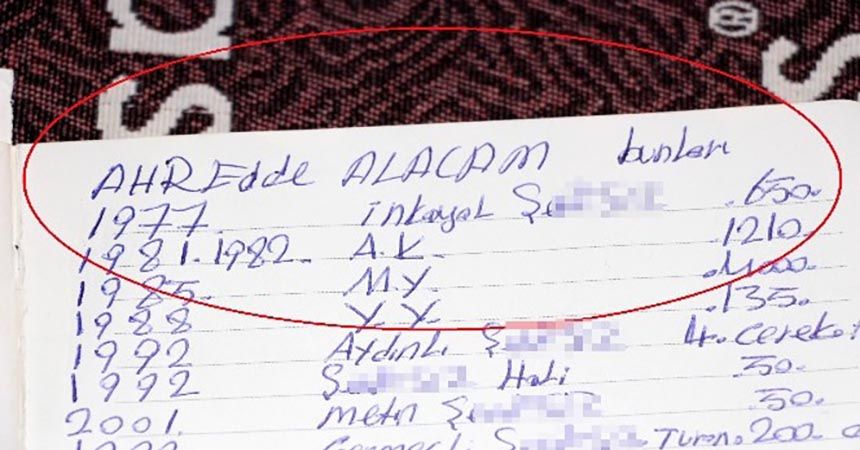 AHREdde ALACAM bunları
1977. inkayal Şe .650.
1981.1982. A.K. .1210.
1985. M.Y. .4000.
1988 Y.Y. .135.
1992 Aydınlı Ş 4. cerek
1992 Ş Hali .50.
2001. metin Şe .50.
Turan.200